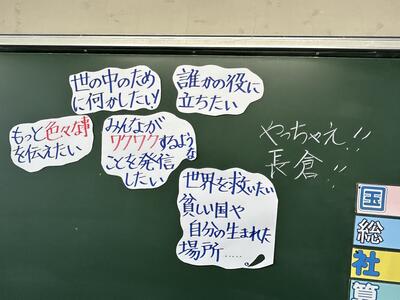 世の中のため
に何かしたい!
誰かの役に
立ちたい
もっと色々な事
を伝えたい
みんなが
ワクワクするような
ことを発信
したい
世界を救いたい
貧しい国や
自分の生まれた
場所……
やっちゃえ!!
長倉!!
国
総
社
算